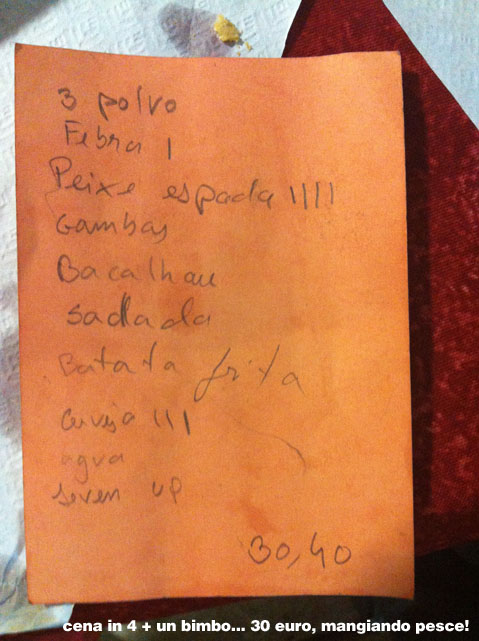 3 polvo
Febra |
Peixe espada ||||
Gambas
Bacalhau
salada
Batata frita
Cerveja |||
agua
seven up
30,40
cena in 4 + un bimbo... 30 euro, mangiando pesce!